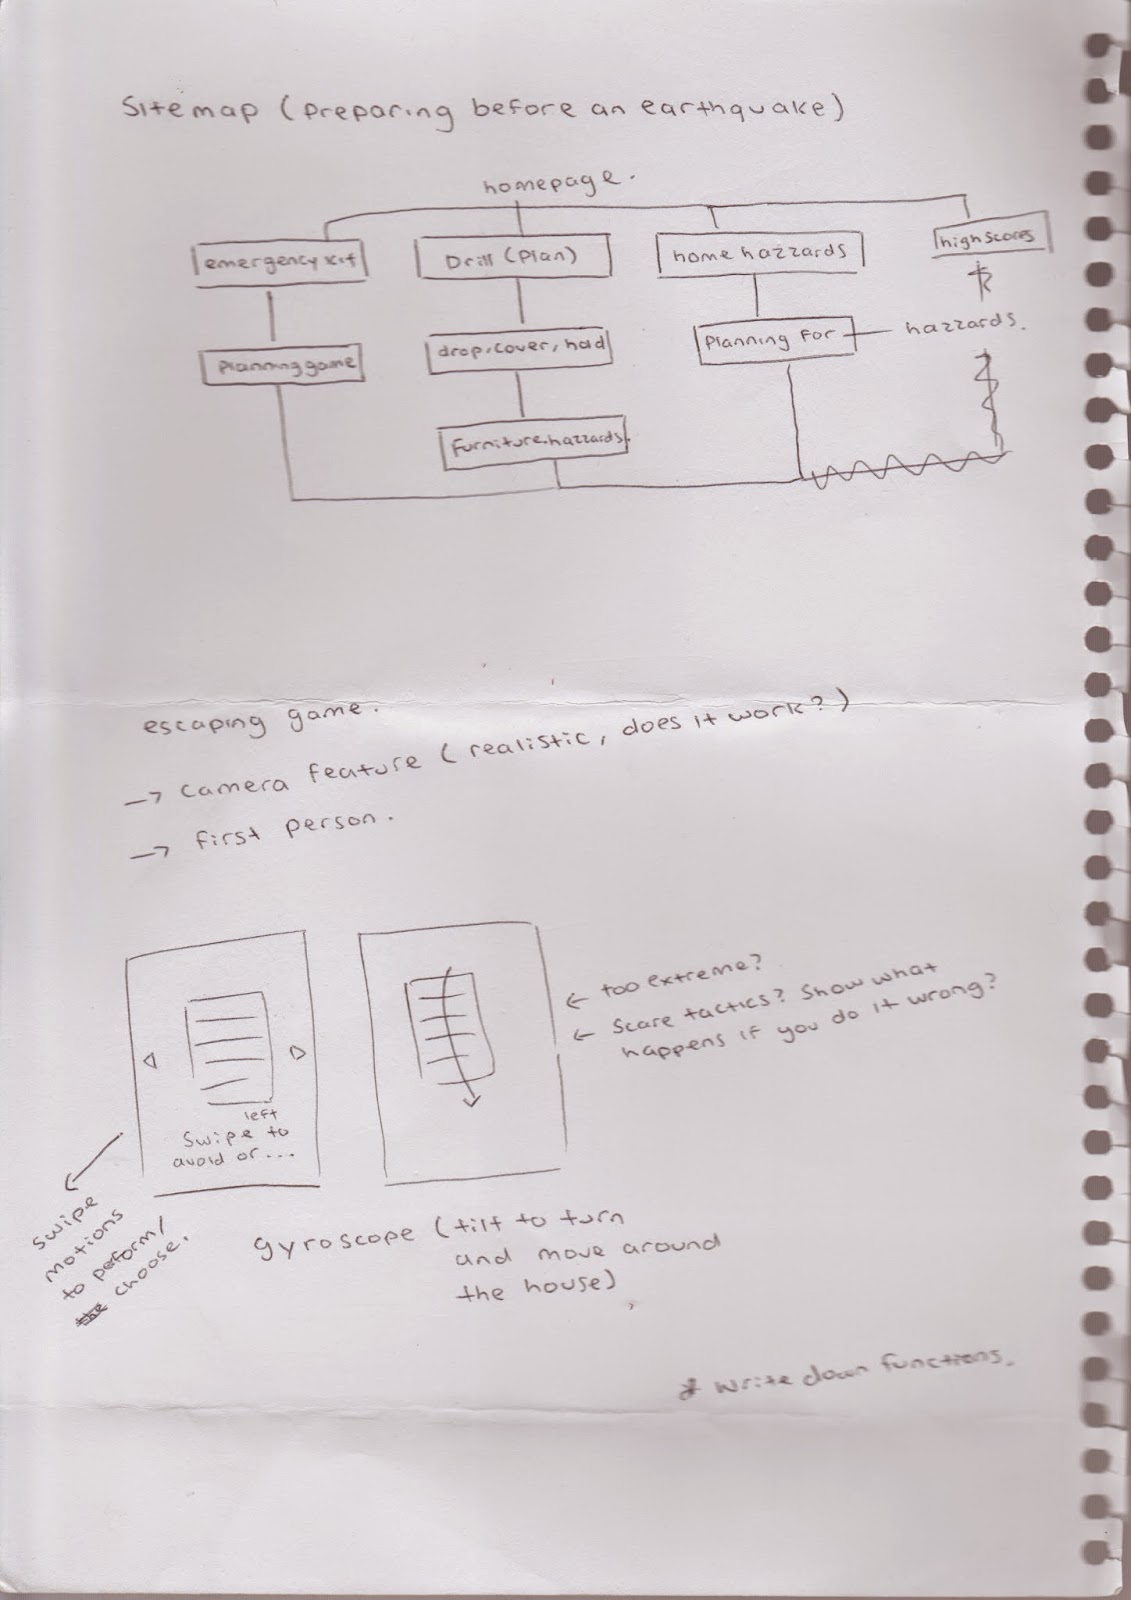 Sitemap (preparing before an earthquake)
homepage.
emergency kit
Drill (Plan)
home hazzards
highscores
planning game
drop, cover, hold
Planning For
hazzards.
Furniture hazzards.
escaping game.
→ camera feature (realistic, does it work?)
→ first person.
← too extreme?
← Scare tactics? Show what
happens if you do it wrong?
left
Swipe to
avoid or...
Swipe
motions
to peform/
the choose.
gyroscope (tilt to turn
and move around
the house)
* write down functions.